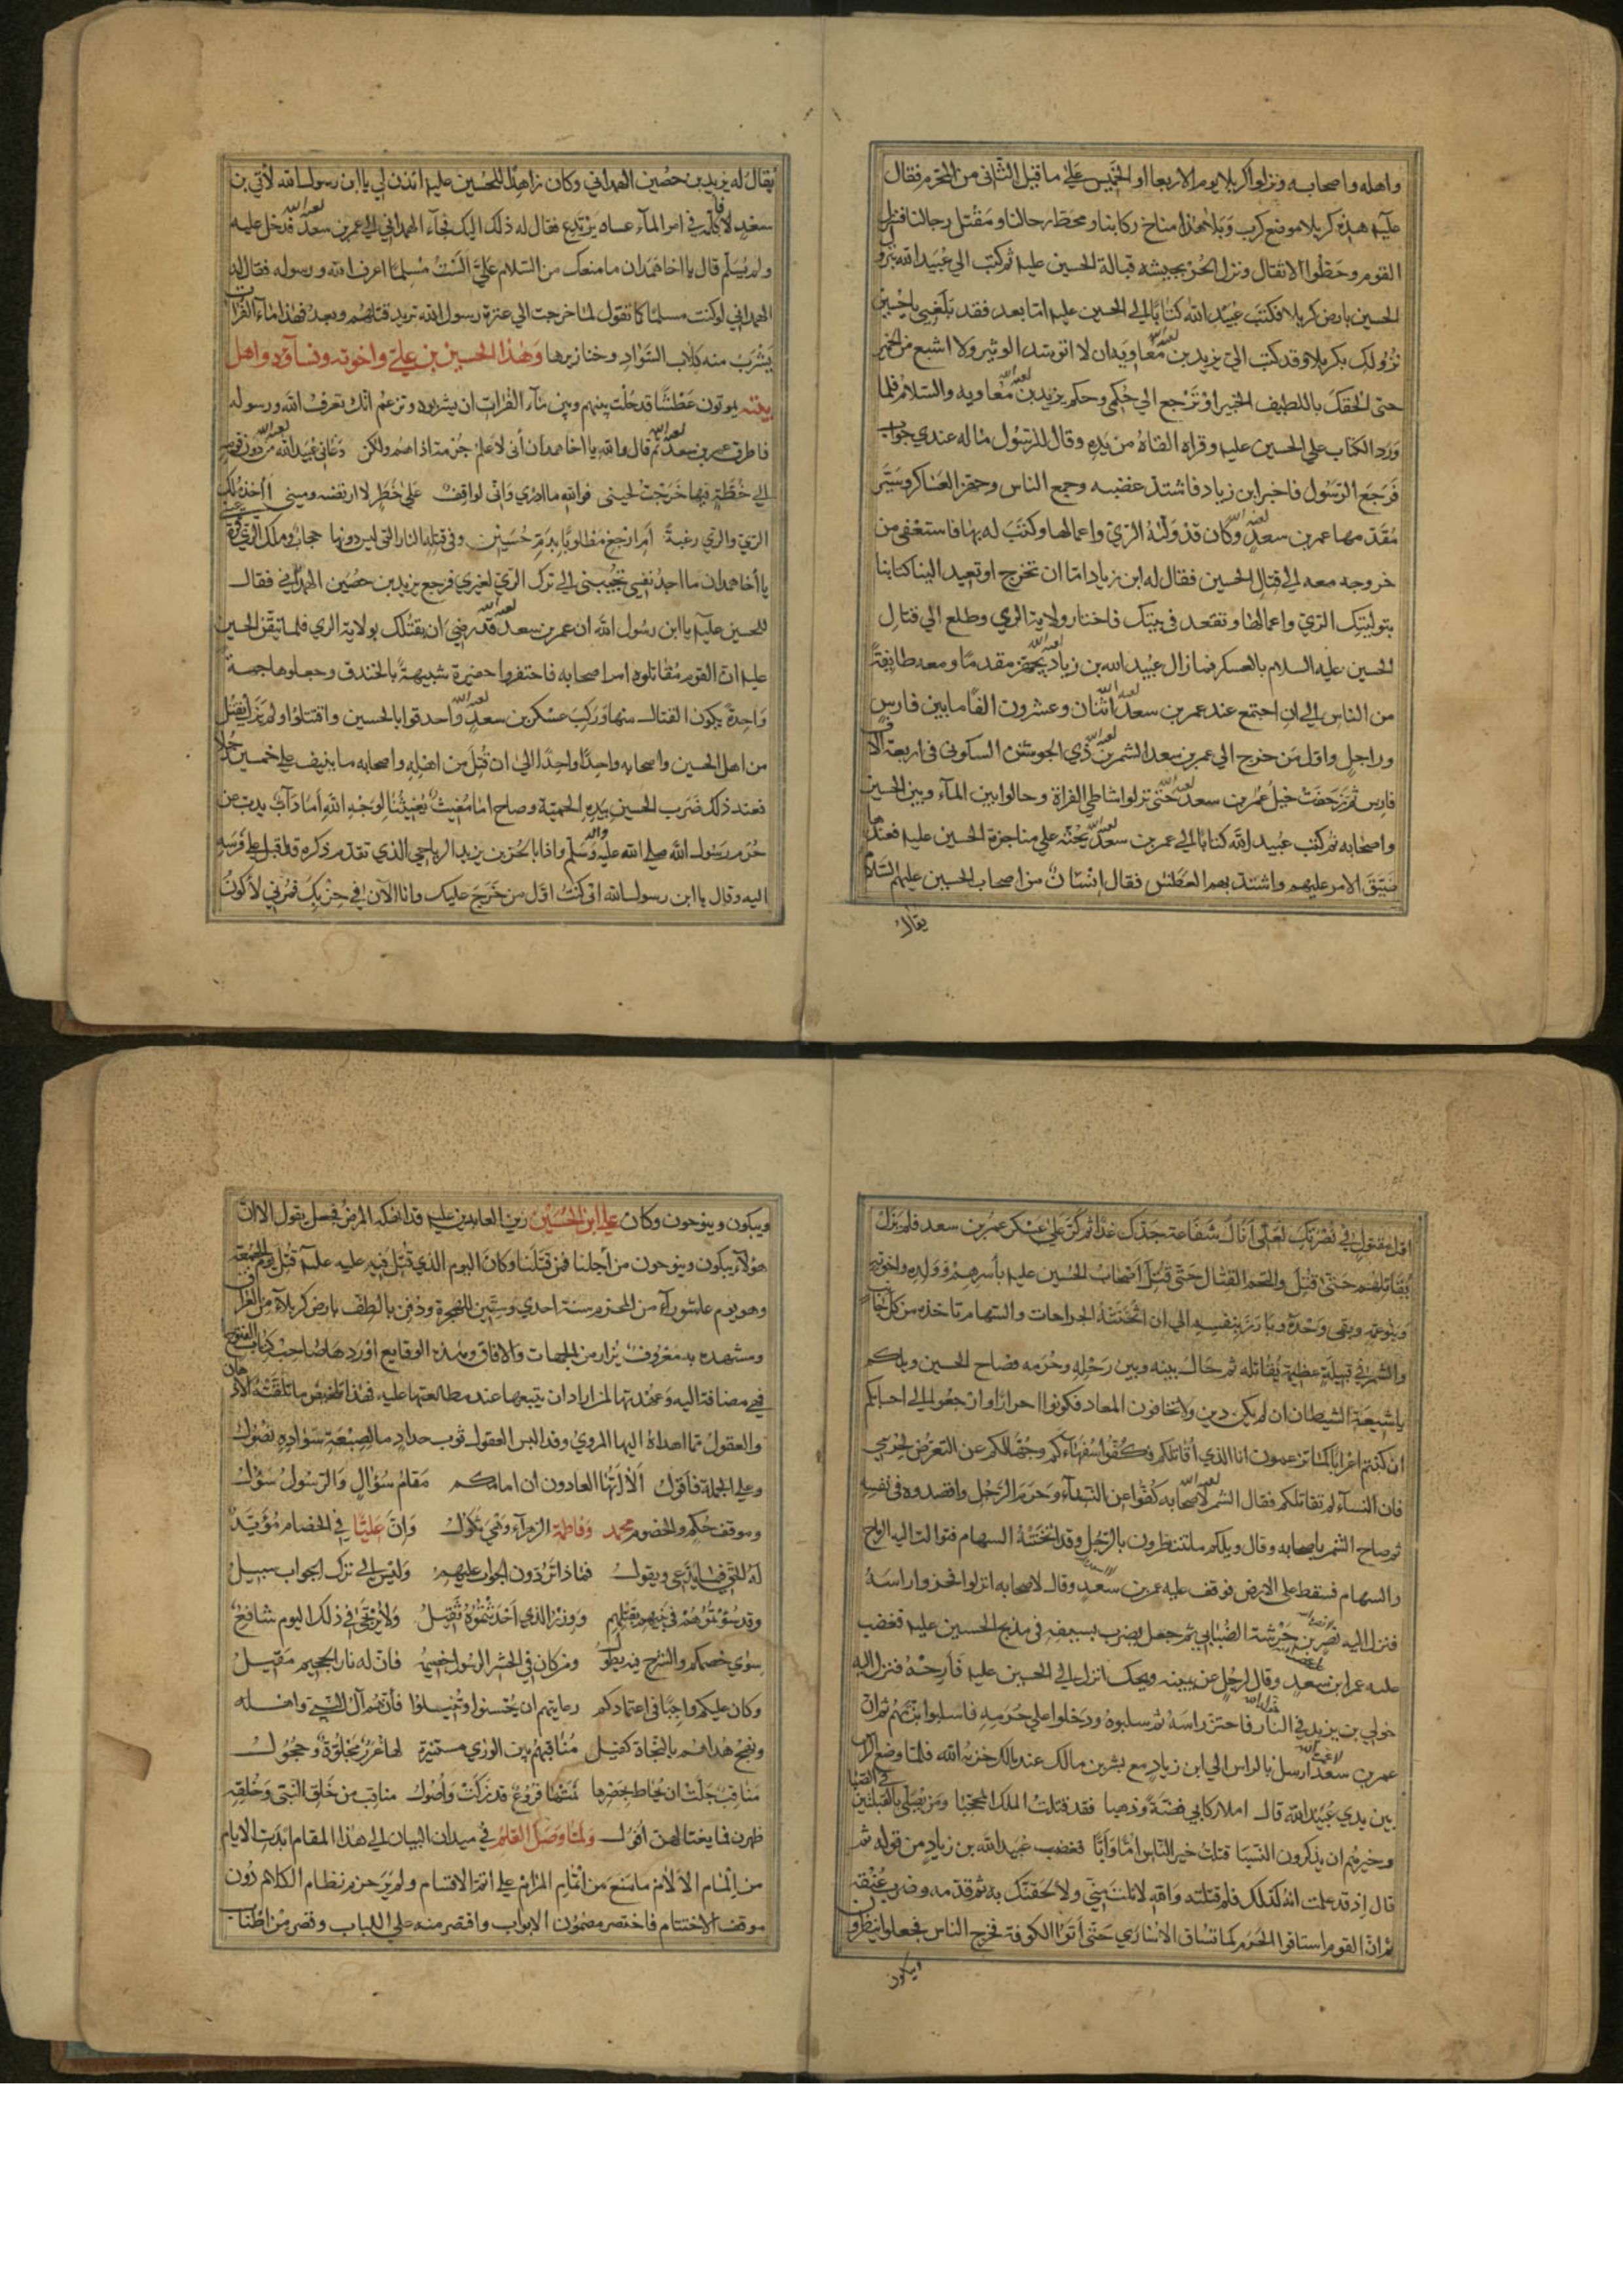 واهله واصحابه ونزلوا كربلا يوم الاربعا او الخميس على ما قيل الثانى من المحرم فقال
عليه هذه كربلا موضع كرب وبلا هذا مناخ ركابنا ومحط رحالنا ومقتل رجالنا فنزل
القوم وحطوا الاثقال ونزل الحر بجيشه قبالة الحسين عليه ثم كتب الى عبيد الله بنزول
الحسين بارض كربلا فكتب عبيد الله كتابا الى الحسين عليه اما بعد فقد بلغني يا حسين
نزولك بكربلا وقد كتب الي يزيد بن معاوية ان لا اتوسد الوثير ولا اشبع من الخمير
حتى الحقك باللطيف الخبير او ترجع الى حكمي وحكم يزيد بن معاويه والسلام فلما
ورد الكتاب على الحسين عليه وقراه القاه من يده وقال للرسول ما له عندي جواب
فرجع الرسول فاخبر ابن زياد فاشتد غضبه وجمع الناس وجهز العساكر وسير
مقدمها عمر بن سعد وكان قد ولاه الري واعمالها وكتب له بها فاستعفى من
خروجه معه الى قتال الحسين فقال له ابن زياد اما ان تخرج او تعيد الينا كتابنا
بتوليتك الري واعمالها وتقعد في بيتك فاختار ولاية الري وطلع الى قتال
الحسين عليه السلام بالعسكر فما زال عبيد الله بن زياد يجهز مقدما ومعه طايفة
من الناس الى ان اجتمع عند عمر بن سعد اثنان وعشرون الفا ما بين فارس
وراجل واول من خرج الى عمر بن سعد الشمر بن ذي الجوشن السكونى فى اربعة الاف
فارس ثم زحفت خيل عمر بن سعد حتى نزلوا شاطى الفراة وحالوا بين المآء وبين الحسين
واصحابه ثم كتب عبيد الله كتابا الى عمر بن سعد يحثه على مناجزة الحسين عليه فعندها
ضيق الامر عليهم واشتد بهم العطش فقال انسان من اصحاب الحسين عليهم السلام
يقال
يقال له يزيد بن حصين الهمداني وكان زاهدا للحسين عليه ائذن لي يا ابن رسول الله لآتي بن
سعد لاكلمه في امر المآء عساه يرتدع فقال له ذلك اليك فجآء الهمداني الى عمر بن سعد فدخل عليه
ولم يسلم قال يا اخا همدان ما منعك من السلام علي الست مسلما اعرف الله ورسوله فقال له
الهمداني لو كنت مسلما كما تقول لما خرجت الى عترة رسول الله تريد قتلهم وبعد فهذا مآء الفرات
يشرب منه كلاب السواد وخنازيرها وهذا الحسين بن علي واخوته ونسآؤه واهل
بيته يموتون عطشا قد حلت بينهم وبين مآء الفرات ان يشربوه وتزعم انك تعرف الله ورسوله
فاطرق عمر بن سعد ثم قال والله يا اخا همدان انى لاعلم حرمة اذاهم ولكن دعاني عبيد الله من دون قومه
الى خطة فيها خرجت لحينى فوالله ما ادري وانى لواقف على خطر لا ارتضيه ومينى ااخذ ملك
الري والري رغبة ام ارجع مطلوبا بدم حسين وفى قتله النار التى ليس دونها حجاب وملك الري قرة
يا اخا همدان ما اجد نفسي تجيبنى الى ترك الري لغيري فرجع يزيد بن حصين الهمداني فقال
للحسين عليه يا ابن رسول الله ان عمر بن سعد قد رضي ان يقتلك بولاية الري فلما تيقن الحسين
عليه ان القوم مقاتلوه امر اصحابه فاحتفروا حفيرة شبيهة بالخندق وجعلوها جهة
واحدة يكون القتال منها وركب عسكر بن سعد واحدقوا بالحسين واقتتلوا ولم يزل يقتل
من اهل الحسين واصحابه واحدا واحدا الى ان قتل من اهله واصحابه ما ينيف على خمسين رجلا
فعند ذلك ضرب الحسين بيده الى لحيته وصاح اما مغيث يغيثنا لوجه الله اما ذاب يذب عن
حرم رسول الله صلى الله عليه واله وسلم واذا بالحر بن يزيد الرياحي الذي تقدم ذكره قد اقبل على فرسه
اليه وقال يا ابن رسول الله انى كنت اول من خرج عليك وانا الآن في حزبك فمرني لاكون
اول مقتول في نصرتك لعلى انال شفاعة جدك غدا ثم كر على عسكر عمر بن سعد فلم يزل
يقاتلهم حتى قتل والتحم القتال حتى قتل اصحاب الحسين عليه باسرهم وولده واخوته
وبنو عمه وبقى وحده وبارز بنفسه الى ان اثخنته الجراحات والسهام تاخذه من كل جانب
والشمر في قبيلة عظيمة يقاتله ثم حال بينه وبين رحله وحرمه فصاح الحسين ويلكم
يا شيعة الشيطان ان لم يكن دين ولا تخافون المعاد فكونوا احرارا وارجعوا الى احسابكم
ان كنتم اعرابا كما تزعمون انا الذي اقاتلكم فكفوا سفهاءكم وجهالكم عن التعرض لحرمي
فان النسآء لم تقاتلكم فقال الشمر لاصحابه كفوا عن النسآء وحرم الرجل واقصدوه فى نفسه
ثم صاح الشمر باصحابه وقال ويلكم ما تنتظرون بالرجل وقد اثخنته السهام فتوالت اليه الرماح
والسهام فسقط على الارض فوقف عليه عمر بن سعد وقال لاصحابه انزلوا فحزوا راسه
فنزل اليه نصر بن خرشة الضبابي ثم جعل يضرب بسيفه فى مذبح الحسين عليه فغضب
عليه عمر ابن سعد وقال لرجل عن يمينه ويحك انزل الى الحسين عليه فارحه فنزل اليه
خولي بن يزيد في النار فاحتز راسه ثم سلبوه ودخلوا على حرمه فاسلبوا بزتهم ثم ان
عمر بن سعد ارسل بالراس الى ابن زياد مع بشر بن مالك عند مالك خزيه الله فلما وضع الراس
بين يدي عبيد الله قال املا ركابي فضة وذهبا فقد قتلت الملك المحجبا ومن يصلى القبلتين فى الصبا
وخيرهم ان يذكرون النسبا قتلت خير الناس اما وابا فغضب عبيد الله بن زياد من قوله ثم
قال اذ قد علمت انه كذلك فلم قتلته والله لا نلت مني ولالحقنك به ثم قدمه وضرب عنقه
ثم ان القوم استاقوا الحرم كما تساق الاسارى حتى اتوا الكوفة فخرج الناس فجعلوا ينظرون
ويبكون وينوحون وكان علي ابن الحسين زين العابدين عليه قد انهكه المرض فجعل يقول الا ان
هؤلآء يبكون وينوحون من اجلنا فمن قتلنا وكان اليوم الذي قتل فيه عليه قتل يوم الجمعة
وهو يوم عاشورآء من المحرم سنة احدى وستين للهجرة ودفن بالطف بارض كربلآء من العراق
ومشهده به معروف يزار من الجهات والافاق وهذه الوقايع اوردها صاحب كتاب الفتوح
فهي مضافة اليه وعهدتها لمن اراد ان يتبعها عند مطالعتها عليه فهذا تلخيص ما تلقته الاذهان
والعقول مما اهداه اليها المروي وقد البس العقول ثوب حداد ما لصبغة سواده نصول
وعلى الجملة فاقول الا ايها العادون ان امامكم مقام سؤال والرسول سؤل
وموقف حكم والخصوم محمد وفاطمة الزهرآء وهي ثكول وان عليا في الخصام مؤيد
له الحق فيما يدعى ويقول فماذا تردون الجواب عليهم وليس الى ترك الجواب سبيل
وقد سؤتموهم في بنيهم بقتلهم ووزر الذي احدثتموه ثقيل ولا يرتجى في ذلك اليوم شافع
سوى خصمكم والشرح فيه يطول ومن كان في الحشر الرسول خصيمه فان له نار الجحيم مقيل
وكان عليكم واجبا في اعتمادكم رعايتهم ان يحسنوا وتنيلوا فانهم آل النبي واهله
ونهج هداهم بالنجاة كفيل مناقبهم بين الورى مستنيرة لها غرر مجلوة وحجول
مناقب جلت ان يحاط بحصرها نمتها فروع قد زكت واصول مناقب من خلق النبى وخلقه
ظهرن فما يغتالهن افول ولما وصل القلم في ميدان البيان الى هذا المقام ابدت الايام
من المام الآلام ما منع من اتمام المرام على اتم الاقسام ولم ير حزم نظام الكلام دون
موقف الاختتام فاختصر مضمون الابواب واقتصر منه على اللباب وقصر من اطناب